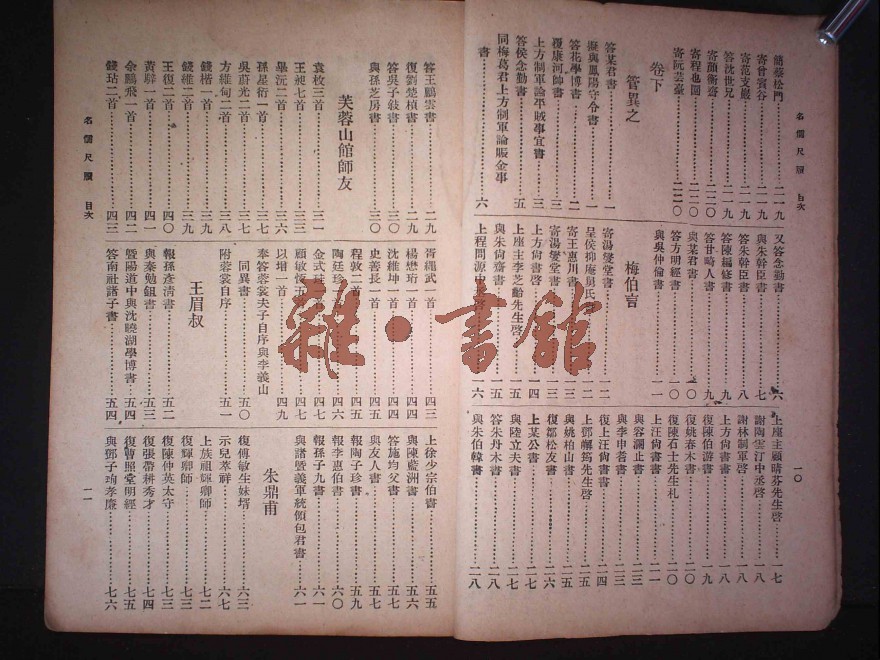 名儒尺牘 目次
一〇
簡蔡松門……二一九
寄曾賓谷……二一九
寄范支巖……二一九
答沈世兄……二一九
寄顏衡齋……二二〇
寄程也園……二二〇
寄阮芸臺……二二〇
卷下
管異之
答某君書……一
擬與鳳陽守令書……一
答花學博書……二
覆康河帥書……三
上方制軍論平賊事宜書……三
答侯念勤書……五
同梅葛君上方制軍論賑金事書……六
又答念勤書……六
與朱幹臣書……七
答朱幹臣書……八
答陳編修書……九
答甘畸人書……九
與某君書……一〇
答方明經書……一〇
與吳仲倫書……一一
梅伯言
寄湯燮堂書……一二
呈侯抑庵舅氏……一二
寄王惠川書……一三
寄湯燮堂書……一三
上方尙書啓……一四
上座主李芝齡先生啓……一五
與朱尙齋書……一五
上程問源中丞書……一六
上座主顧晴芬先生啓……一七
謝陶雲汀中丞啓……一八
謝林制軍啓……一八
上方尙書書……一八
復陳伯游書……一九
復姚春木書……二〇
復陳石士先生札……二〇
上汪尙書書……二一
與容瀾止書……二三
與李申耆書……二三
復上汪尙書書……二四
上鄧嶰筠先生啓……二五
與姚柏山書……二五
復鄒松友書……二六
上某公書……二七
與陸立夫書……二七
答朱丹木書……二八
與朱伯韓書……二八
答王鵬雲書……二九
復劉楚楨書……二九
答吳子敍書……三〇
與孫芝房書……三〇
芙蓉山館師友
袁枚三首……三一
王昶七首……三三
畢沅二首……三六
孫星衍一首……三七
吳蔚光二首……三七
方維甸二首……三八
錢楷一首……三九
錢維二首……三九
王復二首……四〇
黃騂一首……四一
余鵬飛一首……四二
錢玷二首……四三
胥繩武一首……四三
楊懋珩一首……四四
沈維坤一首……四五
史善長一首……四五
程敦二首……四五
陶廷珍……四六
金式……四七
顧敏恆五……四七
以增一首……四九
奉答蓉裳夫子自序與李義山同異書……五〇
附蓉裳自序……五一
王眉叔
報孫彥淸書……五二
與秦勉鉏書……五三
曁陽道中與沈曉湖學博書……五四
答南社諸子書……五四
上徐少宗伯書……五五
與陳藍洲書……五六
答施均父書……五七
與友人書……五七
報陶子珍書……五九
報李惠伯書……六〇
報孫子九書……六一
與諸曁義軍統領包君書……六一
朱鼎甫
復傅敏生妹壻……六三
示兒萃祥……六七
上族祖輝卿師……七二
復輝卿師……七三
復陳仲英太守……七三
復張帶耕秀才……七四
復曾照堂明經……七五
與鄧子珣孝廉……七六
名儒尺牘 目次
一一
雜·書館